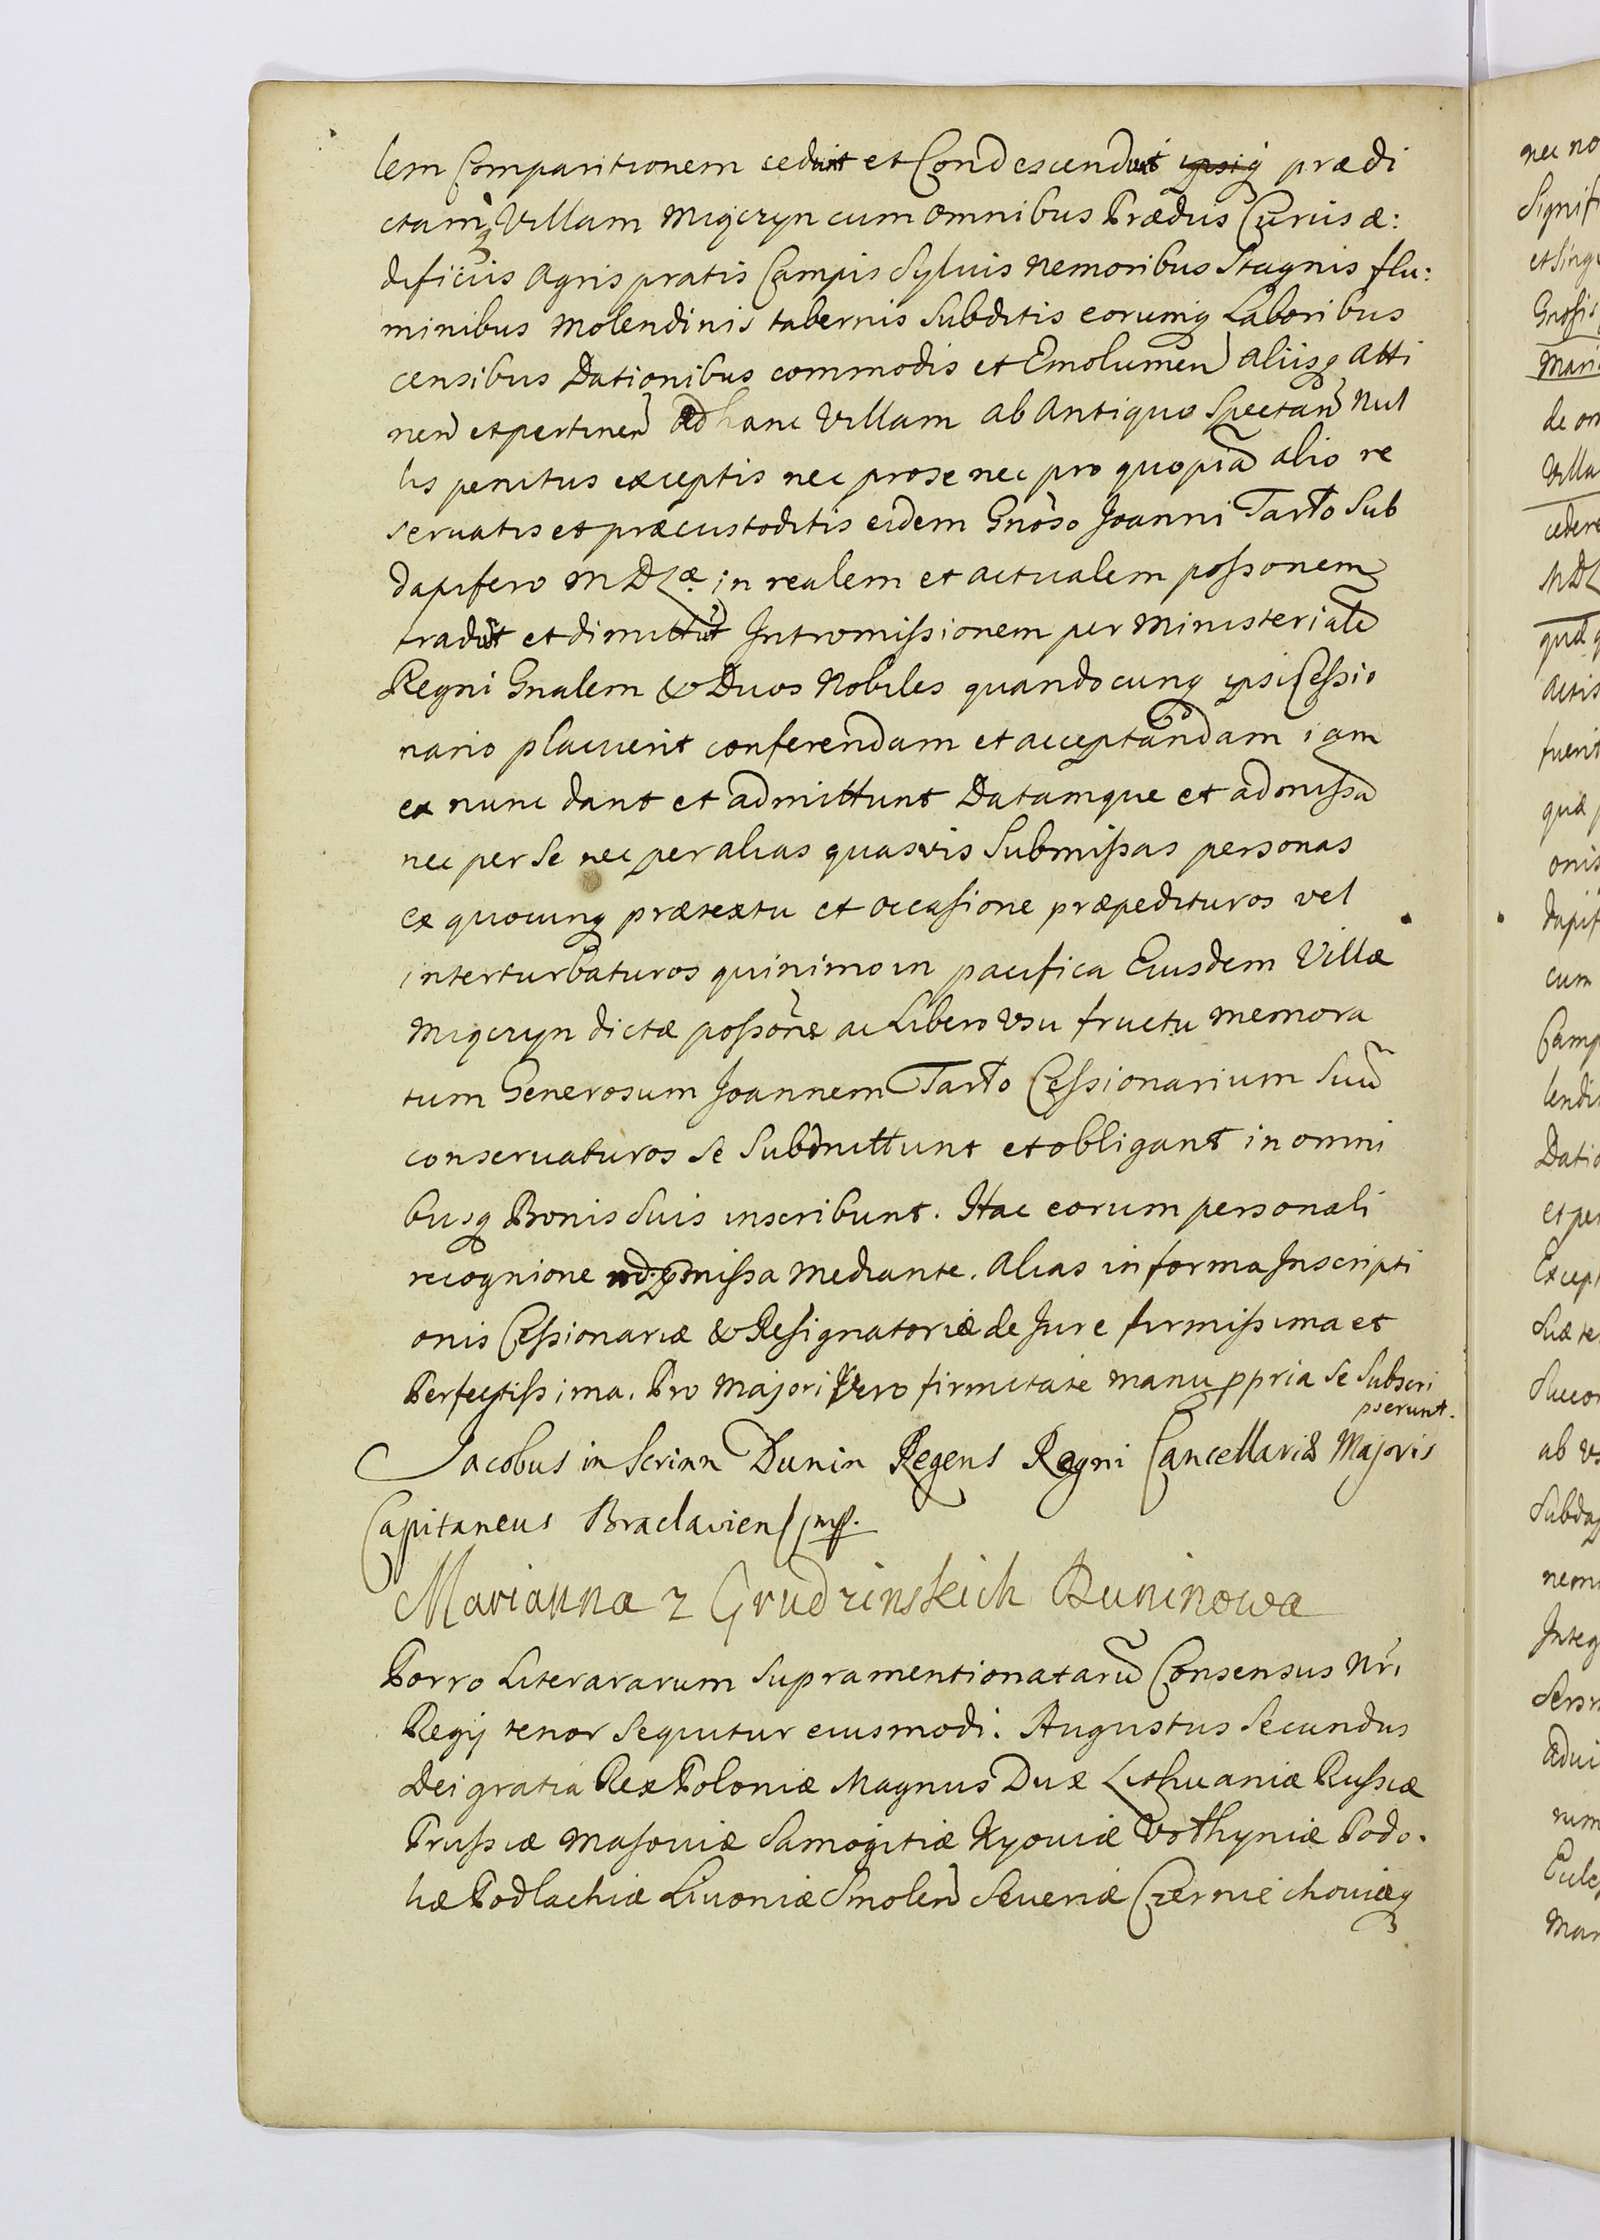 lem Comparitionem cedunt et Condescendunt ipsiq prædi
ctamq Villam Miączyn cum omnibus Prædiis Curiis æ:
dificiis Agris pratis Campis Sylvis Nemoribus Stagnis flu:
minibus Molendinis tabernis Subditis eorumq Laboribus
censibus Dationibus commodis et Emolumen aliisq Atti
nen et pertinen ad hanc Villam ab Antiquo Spectan Nul
lis penitus exceptis nec pro se nec pro quopiã alio re
servatis et præcustoditis eidem Gnoso Joanni Tarło Sub
dapifero M D L æ. in realem et actualem possonem
tradũt et dimittũt Intromissionem per Ministerialẽ
Regni Gnalem & Duos Nobiles quandocunq ipsi Cessio
nario placuerit conferendam et acceptandam iam
ex nunc dant et admittunt Datamque et admissã
nec per Se nec per alias quasvis Submissas personas
ex quocunq prætextu et occasione præpedituros vel
interturbaturos quinimo in pacifica Eiusdem Villæ
Miączyn dictæ possone ac Libero Vsu fructu memora
tum Generosum Joannem Tarło Cessionarium Suũ
conservaturos Se Submittunt et obligant in omni
busq Bonis Suis inscribunt. Hac eorum personali
recognione præmissa Mediante. Alias in forma Inscripti
onis Cessionariæ & Resignatoriæ de Jure firmissima et
Perfectissima. Pro Majori Vero firmitate manu ppria Se Subscri
pserunt.
Jacobus in Scrinn Dunin Regens Regni Cancellariæ Majoris
Capitaneus Braclaviens mp.
Marianna z Grudzinskich Duninowa
Porro Literararum Supramentionatarũ Consensus Nri
Regij tenor Sequitur eiusmodi. Augustus Secundus
Dei gratia Rex Poloniæ Magnus Dux Lithuaniæ Russiæ
Prussiæ Masoviæ Samogitiæ Kyoviæ Volhyniæ Podo.
liæ Podlachiæ Livoniæ Smolen Severiæ Czerniechoviæq
nec no
Signif
et Singu
Gnosis
Mari
de om
Villa
cedere
M D L
quæ q
Actis
fuerit
quæ p
onis
dapif
cum
Camp
lendi
Datio
et per
Except
Suæ te
Succor
ab vs
Subdap
nem
Integ
Serv
advi
rum
Mar